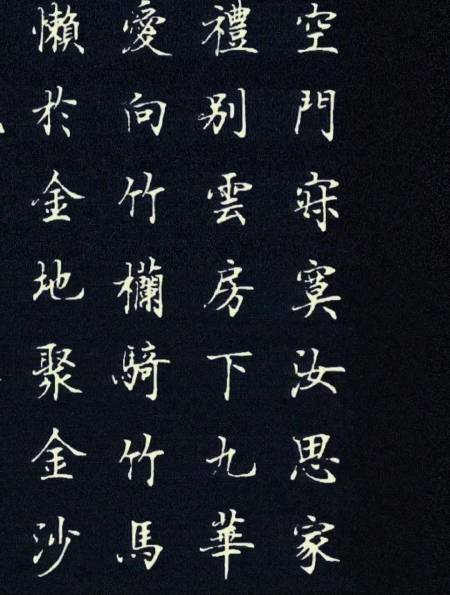 空門寂寞汝思家
禮別雲房下九華
愛向竹欄騎竹馬
懶於金地聚金沙